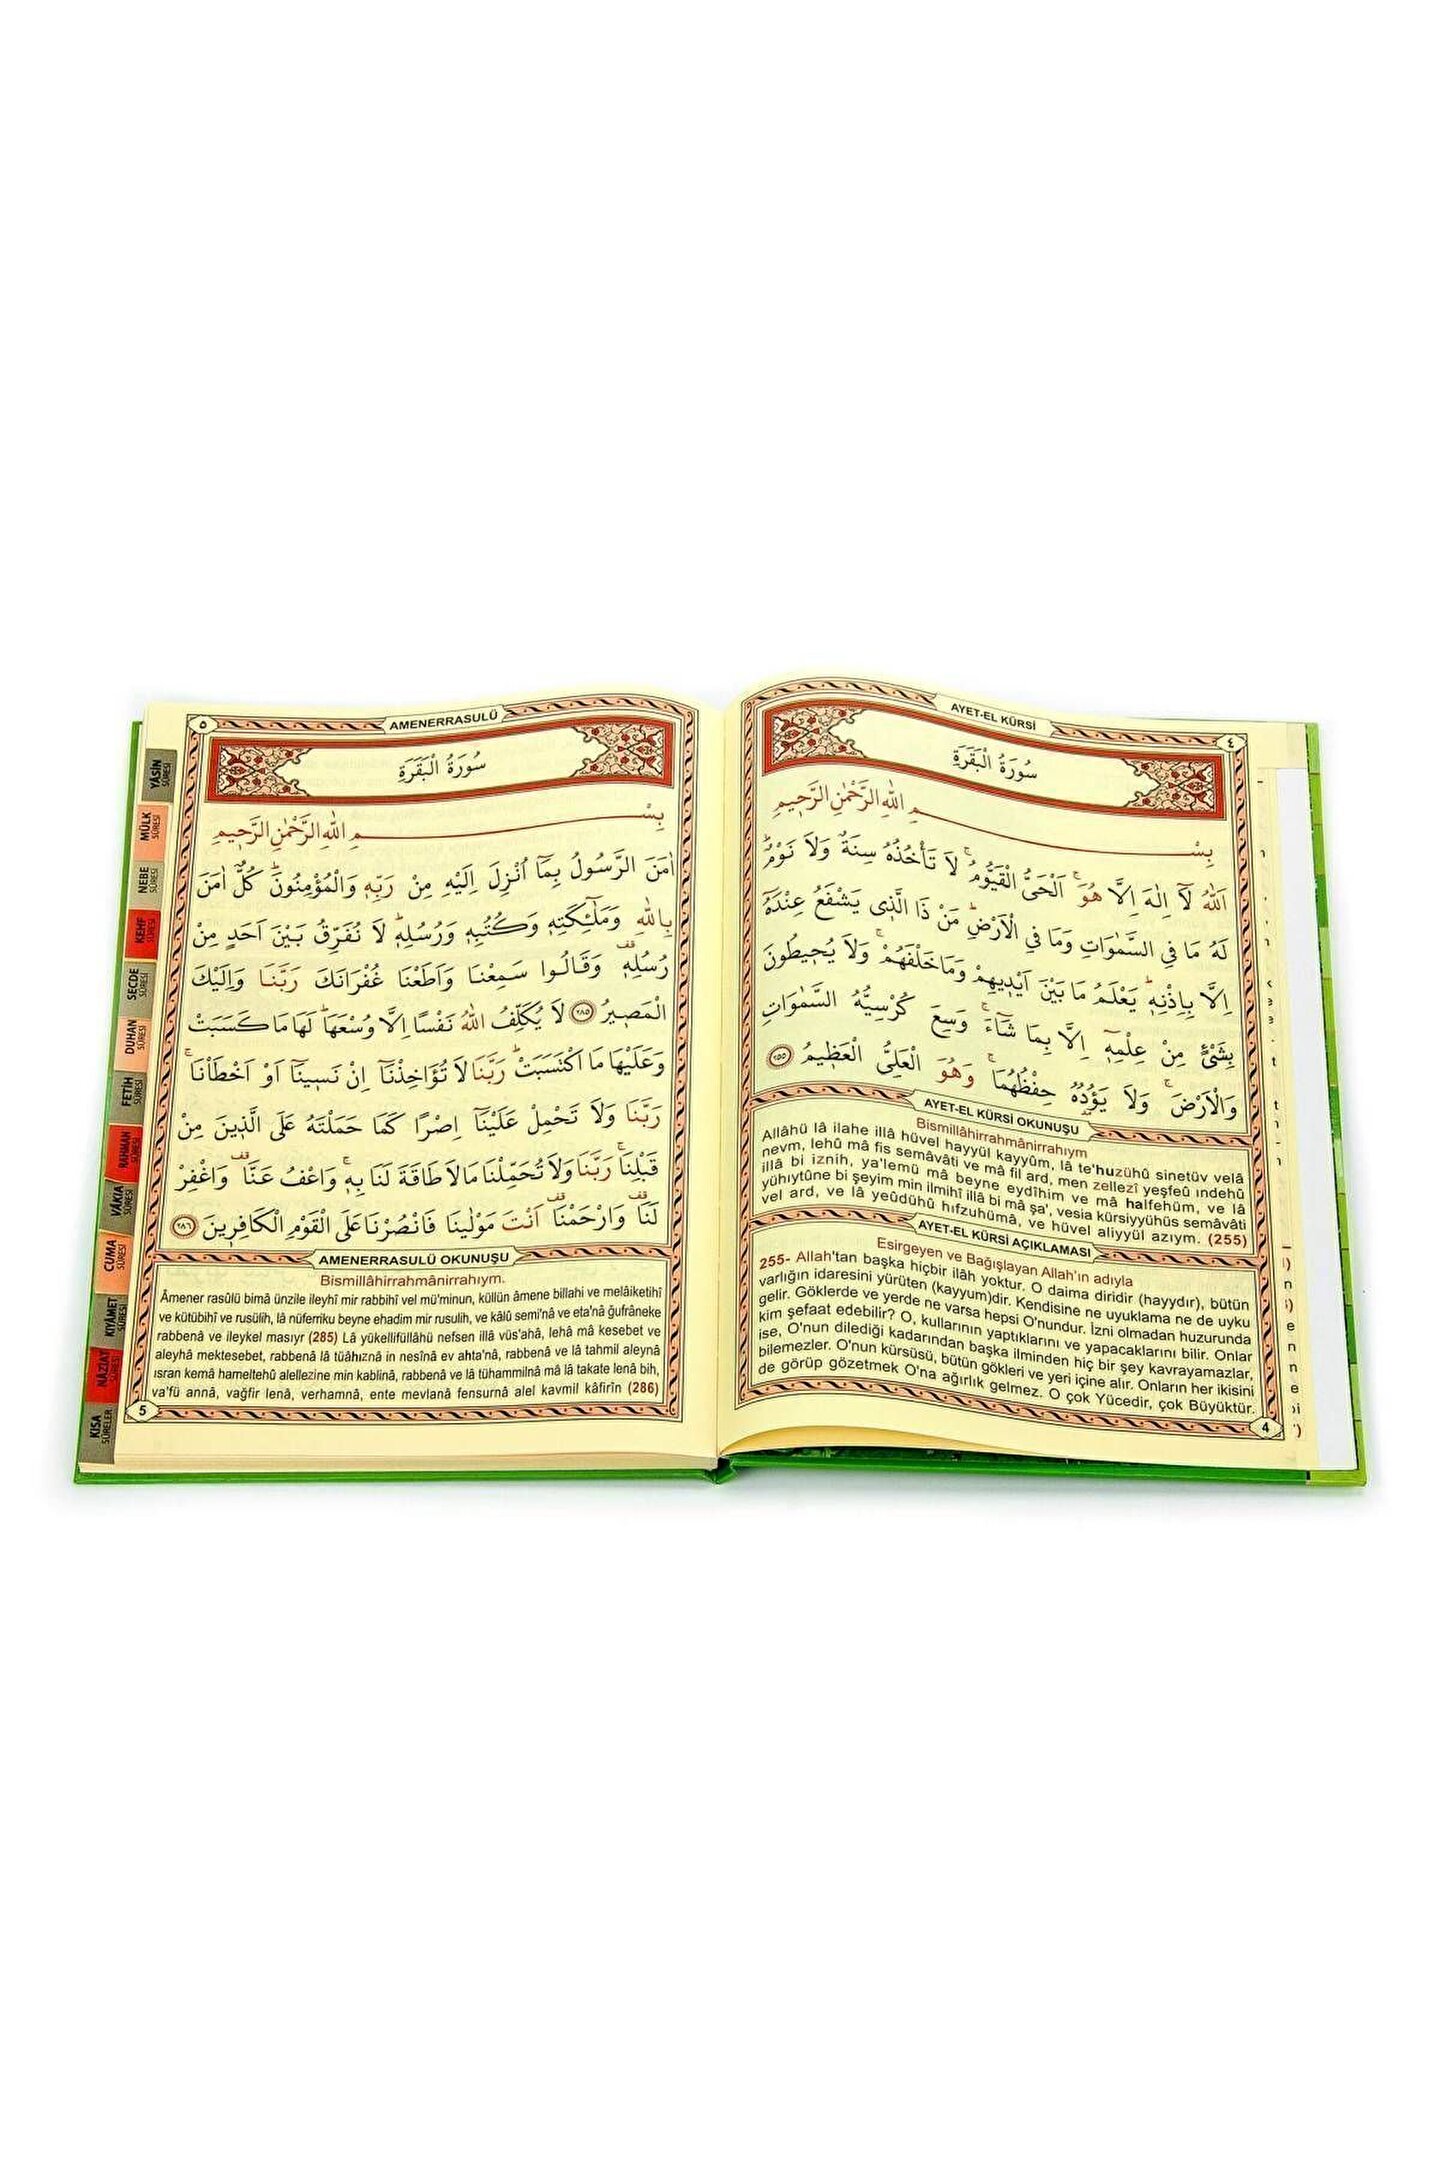 AYET-EL KÜRSİ
٤
سُورَةُ الْبَقَرَةِ
بِسْمِ اللهِ الرَّحْمٰنِ الرَّحِيمِ
اَللهُ لَآ اِلٰهَ اِلَّا هُوَۚ اَلْحَىُّ الْقَيُّومُۚ لَا تَأْخُذُهُ سِنَةٌ وَلَا نَوْمٌۜ
لَهُ مَا فِى السَّمٰوَاتِ وَمَا فِى الْاَرْضِۜ مَنْ ذَا الَّذِى يَشْفَعُ عِنْدَهُٓ
اِلَّا بِاِذْنِهِۜ يَعْلَمُ مَا بَيْنَ اَيْدِيهِمْ وَمَا خَلْفَهُمْۚ وَلَا يُحِيطُونَ
بِشَىْءٍ مِنْ عِلْمِهِٓ اِلَّا بِمَا شَٓاءَۚ وَسِعَ كُرْسِيُّهُ السَّمٰوَاتِ
وَالْاَرْضَۚ وَلَا يَؤُدُهُ حِفْظُهُمَاۚ وَهُوَ الْعَلِىُّ الْعَظِيمُ ٢٥٥
AYET-EL KÜRSİ OKUNUŞU
Bismillâhirrahmânirrahıym
Allâhü lâ ilahe illâ hüvel hayyül kayyûm, lâ te'huzühû sinetüv velâ
nevm, lehû mâ fis semâvâti ve mâ fil ard, men zellezî yeşfeû ındehû
illâ bi iznih, ya'lemü mâ beyne eydîhim ve mâ halfehüm, ve lâ
yühıytûne bi şeyim min ilmihî illâ bi mâ şa', vesia kürsiyyühüs semâvâti
vel ard, ve lâ yeûdühû hıfzuhümâ, ve hüvel aliyyül azıym. (255)
AYET-EL KÜRSİ AÇIKLAMASI
Esirgeyen ve Bağışlayan Allah'ın adıyla
255- Allah'tan başka hiçbir ilâh yoktur. O daima diridir (hayydır), bütün
varlığın idaresini yürüten (kayyum)dir. Kendisine ne uyuklama ne de uyku
gelir. Göklerde ve yerde ne varsa hepsi O'nundur. İzni olmadan huzurunda
kim şefaat edebilir? O, kullarının yaptıklarını ve yapacaklarını bilir. Onlar
ise, O'nun dilediği kadarından başka ilminden hiç bir şey kavrayamazlar,
bilemezler. O'nun kürsüsü, bütün gökleri ve yeri içine alır. Onların her ikisini
de görüp gözetmek O'na ağırlık gelmez. O çok Yücedir, çok Büyüktür.
4
٥
AMENERRASULÜ
سُورَةُ الْبَقَرَةِ
بِسْمِ اللهِ الرَّحْمٰنِ الرَّحِيمِ
اٰمَنَ الرَّسُولُ بِمَٓا اُنْزِلَ اِلَيْهِ مِنْ رَبِّهِ وَالْمُؤْمِنُونَۜ كُلٌّ اٰمَنَ
بِاللهِ وَمَلٰٓئِكَتِهِ وَكُتُبِهِ وَرُسُلِهِۜ لَا نُفَرِّقُ بَيْنَ اَحَدٍ مِنْ
رُسُلِهِ وَقَالُوا سَمِعْنَا وَاَطَعْنَا غُفْرَانَكَ رَبَّنَا وَاِلَيْكَ
الْمَصِيرُ ٢٨٥ لَا يُكَلِّفُ اللهُ نَفْسًا اِلَّا وُسْعَهَاۜ لَهَا مَا كَسَبَتْ
وَعَلَيْهَا مَا اكْتَسَبَتْۜ رَبَّنَا لَا تُؤَاخِذْنَٓا اِنْ نَسِينَٓا اَوْ اَخْطَأْنَاۚ
رَبَّنَا وَلَا تَحْمِلْ عَلَيْنَٓا اِصْرًا كَمَا حَمَلْتَهُ عَلَى الَّذِينَ مِنْ
قَبْلِنَاۚ رَبَّنَا وَلَا تُحَمِّلْنَا مَا لَا طَاقَةَ لَنَا بِهِۚ وَاعْفُ عَنَّا وَاغْفِرْ
لَنَا وَارْحَمْنَا اَنْتَ مَوْلٰينَا فَانْصُرْنَا عَلَى الْقَوْمِ الْكَافِرِينَ ٢٨٦
AMENERRASULÜ OKUNUŞU
Bismillâhirrahmânirrahıym.
Âmener rasûlü bimâ ünzile ileyhî mir rabbihî vel mü'minun, küllün âmene billahi ve melâiketihî
ve kütübihî ve rusülih, lâ nüferriku beyne ehadim mir rusulih, ve kâlû semi'nâ ve eta'nâ ğufrâneke
rabbenâ ve ileykel masıyr (285) Lâ yükellifüllâhü nefsen illâ vüs'ahâ, lehâ mâ kesebet ve
aleyhâ mektesebet, rabbenâ lâ tüâhıznâ in nesînâ ev ahta'nâ, rabbenâ ve lâ tahmil aleynâ
ısran kemâ hameltehû alellezine min kablinâ, rabbenâ ve lâ tühammilnâ mâ lâ takate lenâ bih,
va'fü annâ, vağfir lenâ, verhamnâ, ente mevlanâ fensurnâ alel kavmil kâfirîn (286)
5
YÂSİN
SÛRESİ
MÜLK
SÛRESİ
NEBE
SÛRESİ
KEHF
SÛRESİ
SECDE
SÛRESİ
DUHAN
SÛRESİ
FETİH
SÛRESİ
RAHMAN
SÛRESİ
VÂKIA
SÛRESİ
CUMA
SÛRESİ
KIYÂMET
SÛRESİ
NÂZİAT
SÛRESİ
KISA
SÛRELER